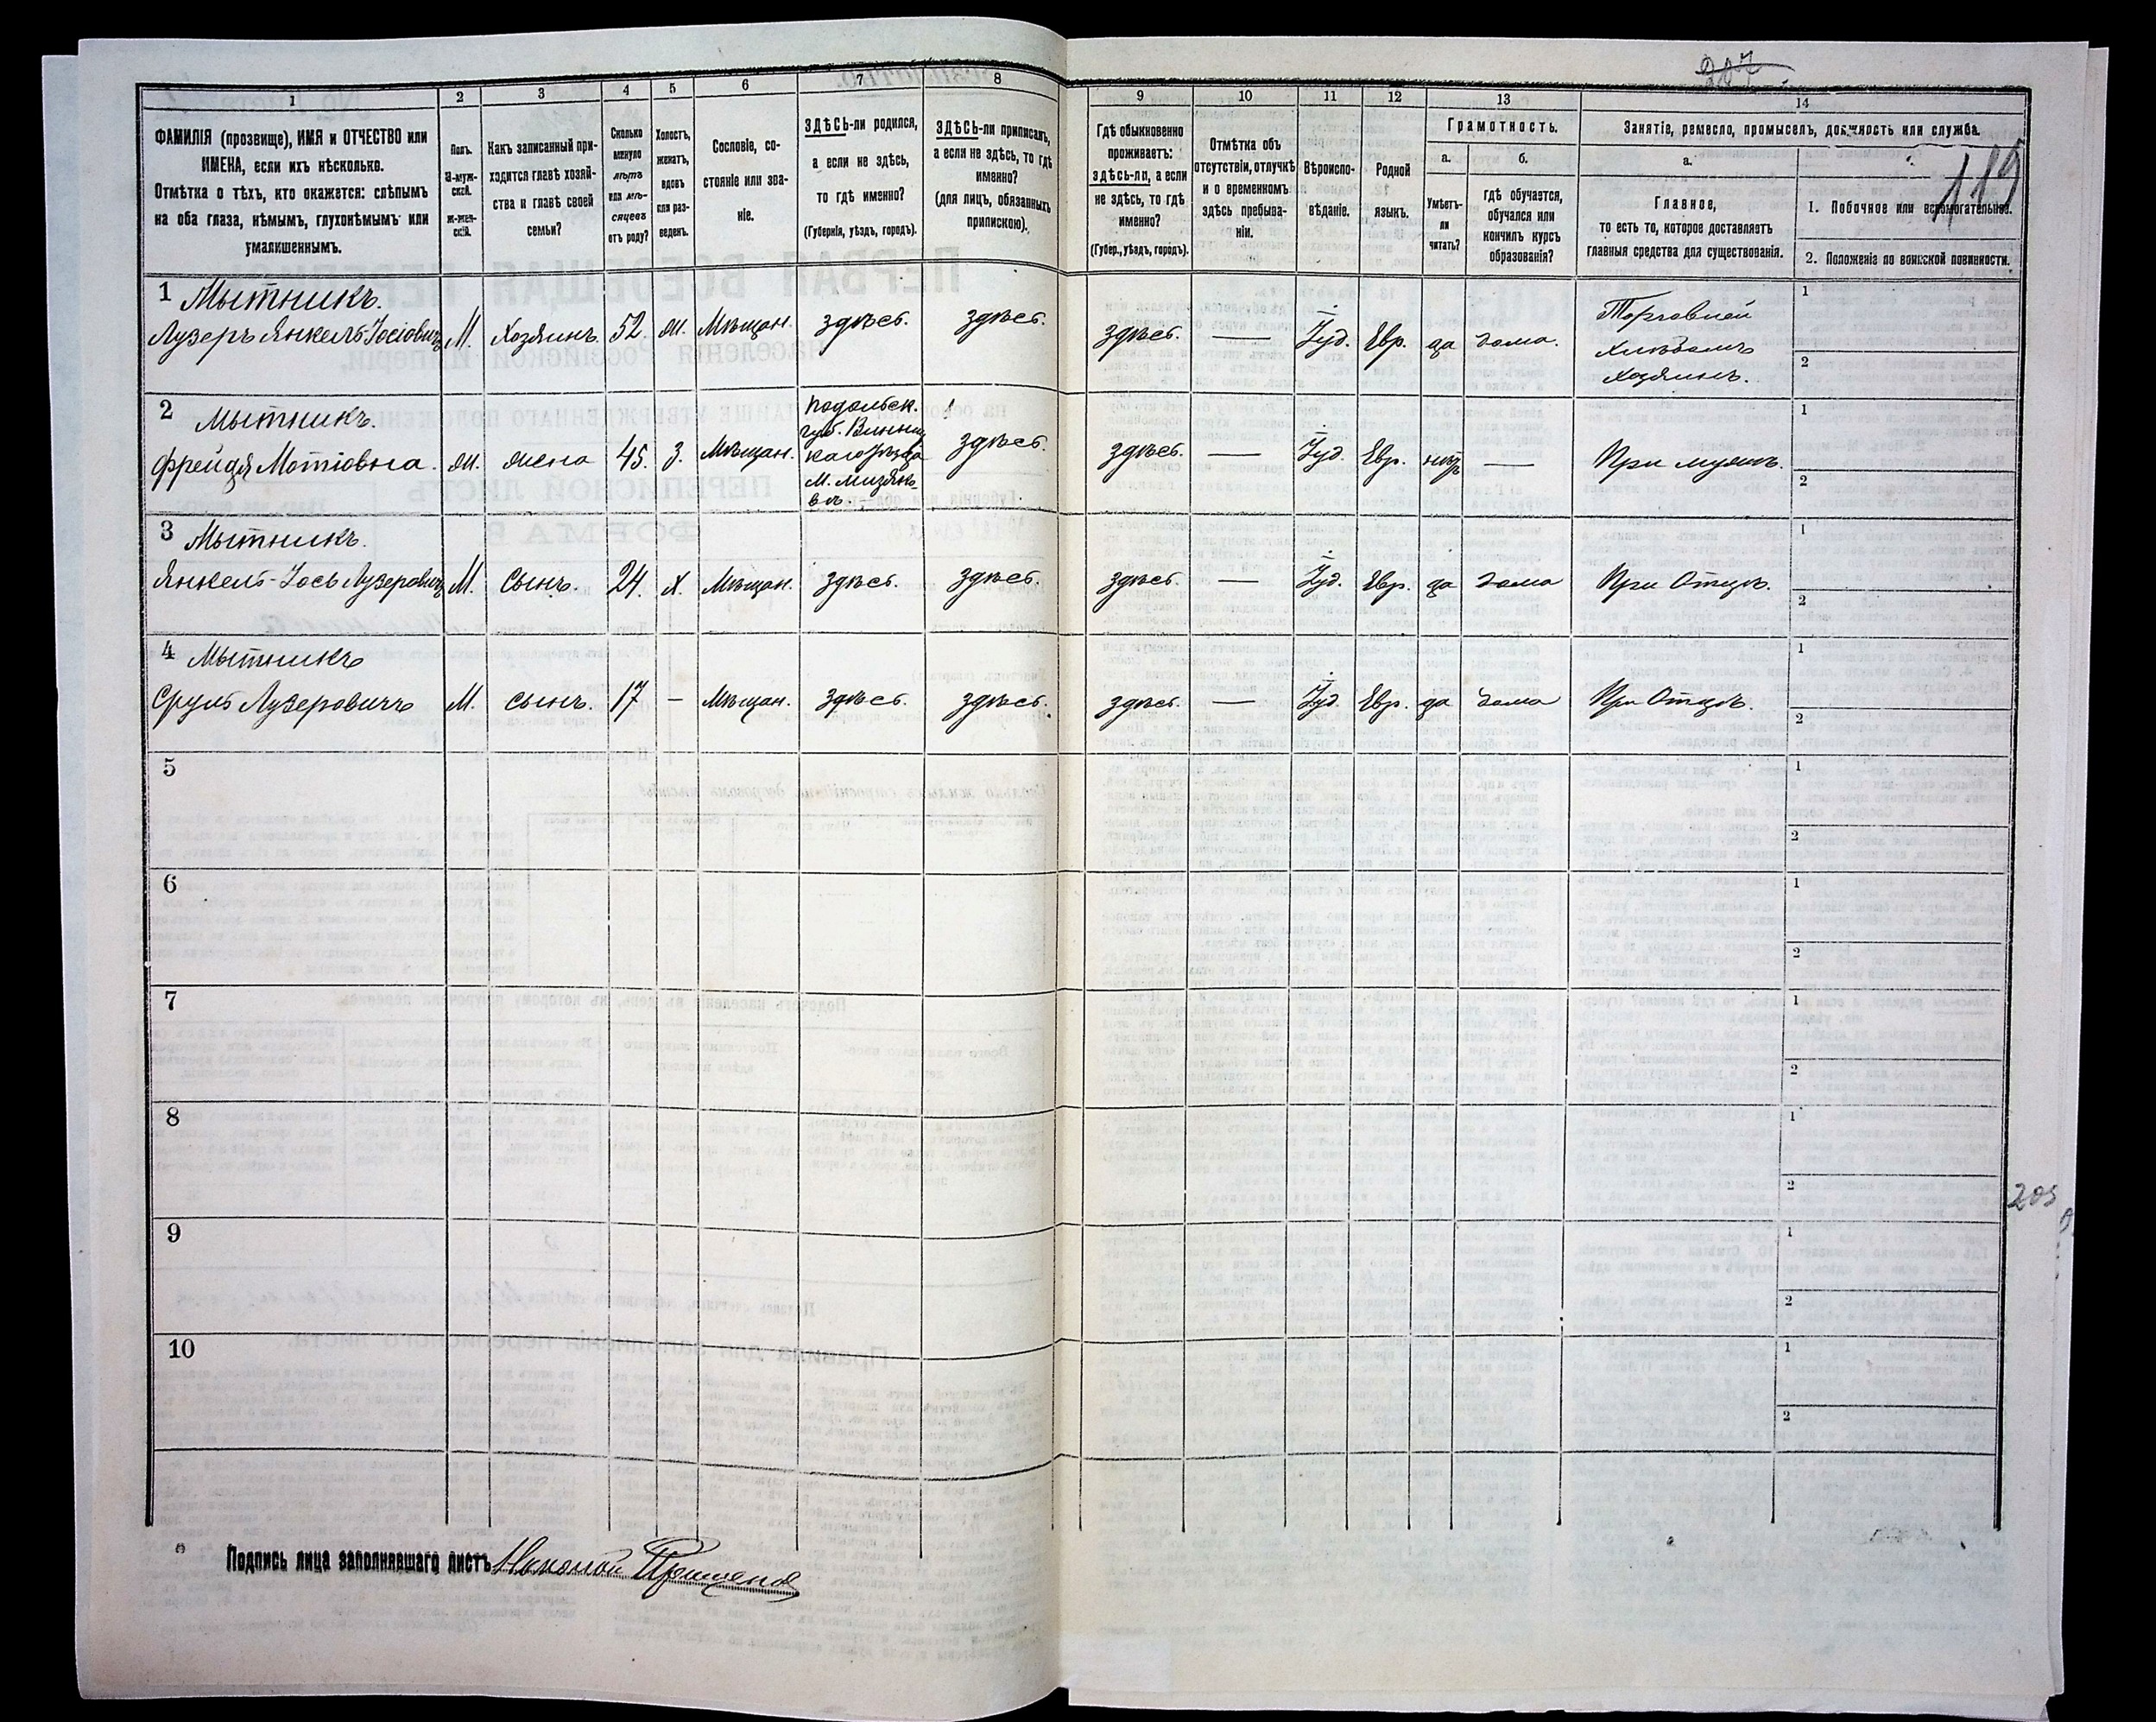 207
119
1
2
3
4
5
6
7
8
9
10
11
12
13
14
ФАМИЛІЯ (прозвище), ИМЯ и ОТЧЕСТВО или
ИМЕНА, если ихъ нѣсколько.
Отмѣтка о тѣхъ, кто окажется: слѣпымъ
на оба глаза, нѣмымъ, глухонѣмымъ или
умалишеннымъ.
Полъ.
М-муж-
ской.
Ж-жен-
скій.
Какъ записанный при-
ходится главѣ хозяй-
ства и главѣ своей
семьи?
Сколько
минуло
лѣтъ
или мѣ-
сяцевъ
отъ роду?
Холостъ,
женатъ,
вдовъ
или раз-
веденъ.
Сословіе, со-
стояніе или зва-
ніе.
ЗДѢСЬ-ли родился,
а если не здѣсь,
то гдѣ именно?
(Губернія, уѣздъ, городъ).
ЗДѢСЬ-ли приписанъ,
а если не здѣсь, то гдѣ
именно?
(для лицъ, обязанныхъ
припискою).
Гдѣ обыкновенно
проживаетъ:
здѣсь-ли, а если
не здѣсь, то гдѣ
именно?
(Губер., уѣздъ, городъ).
Отмѣтка объ
отсутствіи, отлучкѣ
и о временномъ
здѣсь пребыва-
ніи.
Вѣроиспо-
вѣданіе.
Родной
языкъ.
Грамотность.
а.
б.
Умѣетъ-
ли
читать?
гдѣ обучается,
обучался или
кончилъ курсъ
образованія?
Занятіе, ремесло, промыселъ, должность или служба.
а.
Главное,
то есть то, которое доставляетъ
главныя средства для существованія.
1. Побочное или вспомогательное.
2. Положеніе по воинской повинности.
1 Мытникъ.
Лузеръ Янкель-Іосіовичъ
М.
Хозяинъ.
52.
ж.
Мѣщан.
здѣсь.
здѣсь.
здѣсь.
—
Іуд.
Евр.
да
дома.
Торговлей
хлѣбомъ
хозяинъ.
1
2
2 Мытникъ.
Фрейдя Мотіовна.
ж.
жена
45.
З.
Мѣщан.
Подольск.
губ. Винниц
каго уѣзда
М.
здѣсь.
здѣсь.
—
Іуд.
Евр.
нѣтъ
—
При мужѣ.
1
2
3 Мытникъ.
Янкель-Іось Лузеровичъ
М.
Сынъ.
24.
Х.
Мѣщан.
здѣсь.
здѣсь.
здѣсь.
—
Іуд.
Евр.
да
дома
При Отцѣ.
1
2
4 Мытникъ
Сруль Лузеровичъ
М.
сынъ.
17
—
Мѣщан.
здѣсь.
здѣсь.
здѣсь.
—
Іуд.
Евр.
да
дома
При Отцѣ.
1
2
5
1
2
6
1
2
7
1
2
8
1
2
205
9
1
2
10
1
2
Подпись лица заполнявшаго листъ